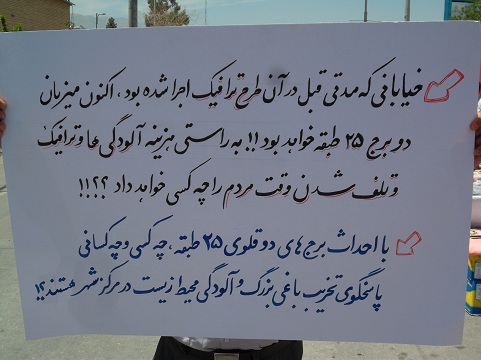 خیابانی که مدتی قبل در آن طرح ترافیک اجرا شده بود ، اکنون میزبان
دو برج ۲۵ طبقه خواهد بود !! به راستی هزینه آلودگی ها و ترافیک
و تلف شدن وقت مردم را چه کسی خواهد داد ؟؟!!
با احداث برج های دوقلوی ۲۵ طبقه ، چه کسی و چه کسانی
پاسخگوی تخریب باغی بزرگ و آلودگی محیط زیست در مرکز شهر هستند ؟!